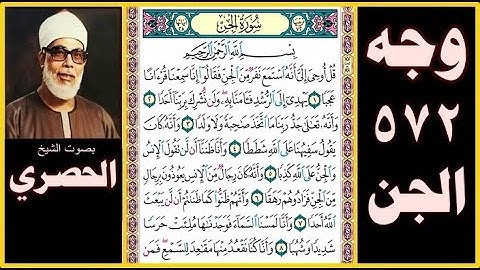 وجه
٥٧٢
الجن
بصوت الشيخ
الحصري
سُورَةُ الجِنِّ
بِسْمِ اللَّهِ الرَّحْمَٰنِ الرَّحِيمِ
قُلْ أُوحِيَ إِلَيَّ أَنَّهُ اسْتَمَعَ نَفَرٌ مِّنَ الْجِنِّ فَقَالُوا إِنَّا سَمِعْنَا قُرْءَانًا
عَجَبًا ١ يَهْدِي إِلَى الرُّشْدِ فَـَٔامَنَّا بِهِ وَلَن نُّشْرِكَ بِرَبِّنَا أَحَدًا ٢
وَأَنَّهُ تَعَالَىٰ جَدُّ رَبِّنَا مَا اتَّخَذَ صَاحِبَةً وَلَا وَلَدًا ٣ وَأَنَّهُ كَانَ
يَقُولُ سَفِيهُنَا عَلَى اللَّهِ شَطَطًا ٤ وَأَنَّا ظَنَنَّا أَن لَّن نَقُولَ الْإِنسُ
وَالْجِنُّ عَلَى اللَّهِ كَذِبًا ٥ وَأَنَّهُ كَانَ رِجَالٌ مِّنَ الْإِنسِ يَعُوذُونَ بِرِجَالٍ
مِّنَ الْجِنِّ فَزَادُوهُمْ رَهَقًا ٦ وَأَنَّهُمْ ظَنُّوا كَمَا ظَنَنتُمْ أَن لَّن يَبْعَثَ
اللَّهُ أَحَدًا ٧ وَأَنَّا لَمَسْنَا السَّمَاءَ فَوَجَدْنَاهَا مُلِئَتْ حَرَسًا
شَدِيدًا وَشُهُبًا ٨ وَأَنَّا كُنَّا نَقْعُدُ مِنْهَا مَقَاعِدَ لِلسَّمْعِ فَمَن